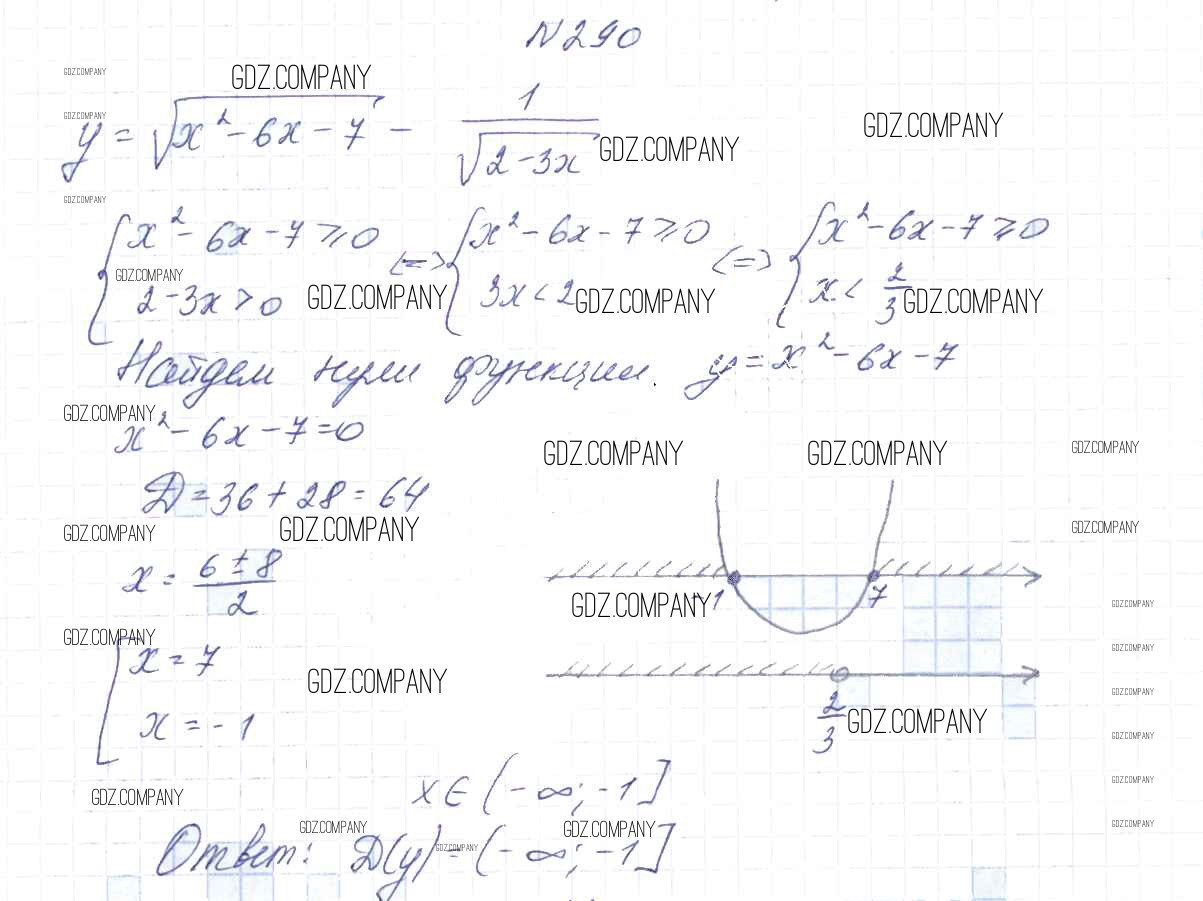 N290
GDZ.COMPANY GDZ.COMPANY
GDZ.COMPANY GDZ.COMPANY
y = √(x² - 6x - 7) - 1/√(2 - 3x) GDZ.COMPANY
GDZ.COMPANY
{x² - 6x - 7 ≥ 0 <=> {x² - 6x - 7 ≥ 0 <=> {x² - 6x - 7 ≥ 0
GDZ.COMPANY
2 - 3x > 0 GDZ.COMPANY 3x < 2 GDZ.COMPANY x < 2/3 GDZ.COMPANY
Найдем нули функции. y = x² - 6x - 7
GDZ.COMPANY
x² - 6x - 7 = 0
GDZ.COMPANY GDZ.COMPANY GDZ.COMPANY
D = 36 + 28 = 64
GDZ.COMPANY GDZ.COMPANY GDZ.COMPANY
x = (6 ± 8)/2
GDZ.COMPANY -1 7 GDZ.COMPANY
GDZ.COMPANY GDZ.COMPANY
[x = 7
GDZ.COMPANY GDZ.COMPANY
x = -1 2/3 GDZ.COMPANY GDZ.COMPANY
x ∈ (-∞; -1] GDZ.COMPANY
GDZ.COMPANY
GDZ.COMPANY GDZ.COMPANY GDZ.COMPANY
Ответ: D(y) = (-∞; -1]
GDZ.COMPANY